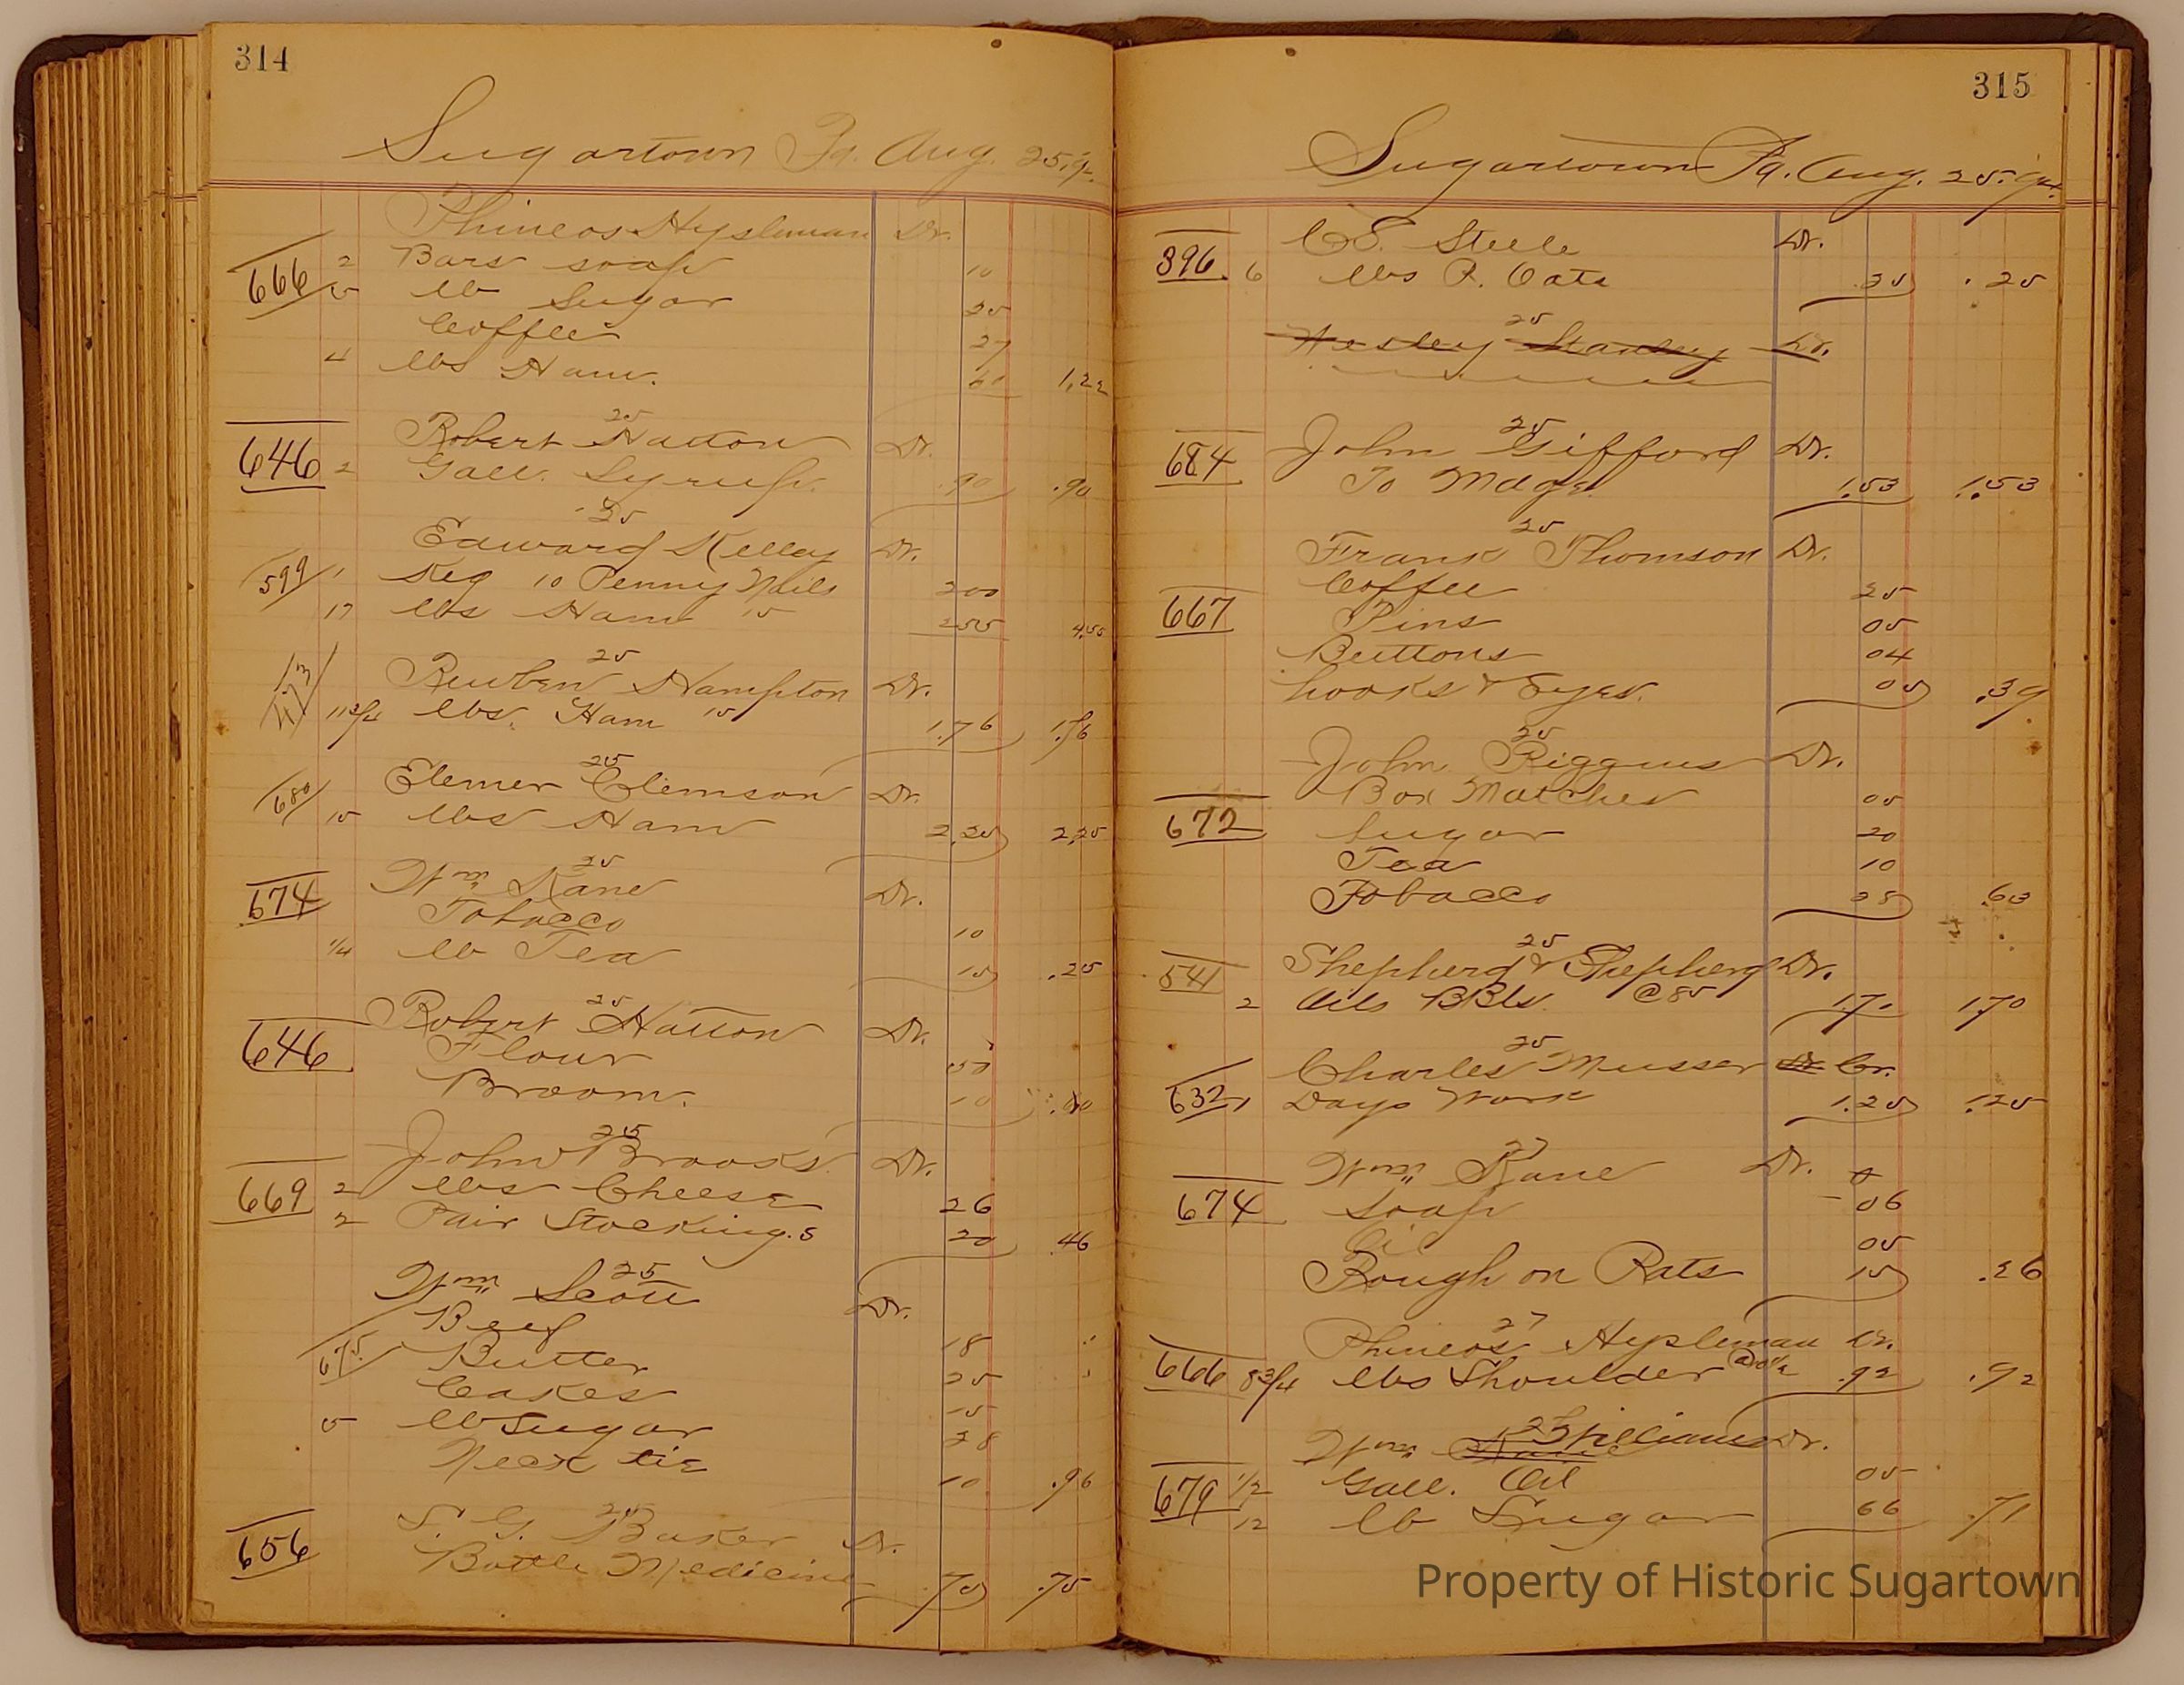 314
Sugartown Pa. Aug. 25, 9
Phineos Hypleman Dr.
666 2 Bars soap 10
5 lb Sugar 25
Coffee 27
4 lbs Ham. 60 1,22
25
646 Robert Hatton Dr.
2 Gall. Syrup. .90 .90
25
Edward Kelley Dr.
599 1 Keg 10 Penny Nails 200
17 lbs Ham 15 255 4,55
25
Reuben Hampton Dr.
11 3/4 lbs. Ham 15 1.76 1.76
25
Elemer Clemson Dr.
680 15 lbs Ham 2.25 2,25
25
674 Wm Kane Dr.
Tobacco 10
1/4 lb Tea 15 .25
25
646 Robert Hatton Dr.
Flour 50
Broom. 10 .60
25
John Brooks Dr.
669 2 lbs Cheese 26
2 Pair Stockings 20 .46
25
Wm Scott Dr.
Beef 18
675 Butter 25
Cakes 15
5 lb Sugar 28
Neck tie 10 .96
25
S. G. Baker Dr.
656 Bottle Medicine .75 .75
315
Sugartown Pa. Aug. 25. 9
C. S. Steele Dr.
396. 6 lbs R. Oats .25 .25
25
Wesley Stanley Dr.
25
684 John Gifford Dr.
To Mdge. 1.53 1.53
25
Frank Thomson Dr.
Coffee 25
667 Pins 05
Buttons 04
hooks & Eyes. 05 .39
25
John Riggins Dr.
Box Matches 05
672 Sugar 20
Tea 10
Tobacco 28 .63
25
541 Shepherd & Shepherd Dr.
2 Oils BBls. @ 85 1.70 1.70
25
Charles Musser Dr Cr.
632 1 Days Work 1.25 1.25
27
Wm Kane Dr.
674 Soap 06
Oil 05
Rough on Rats 15 .26
27
Phineos Hypleman Dr.
666 8 3/4 lbs Shoulder @ 10 1/2 .92 .92
27
Wm Williams Dr.
679 1/2 Gall. Oil 05
12 lb Sugar 66 .71
Property of Historic Sugartown